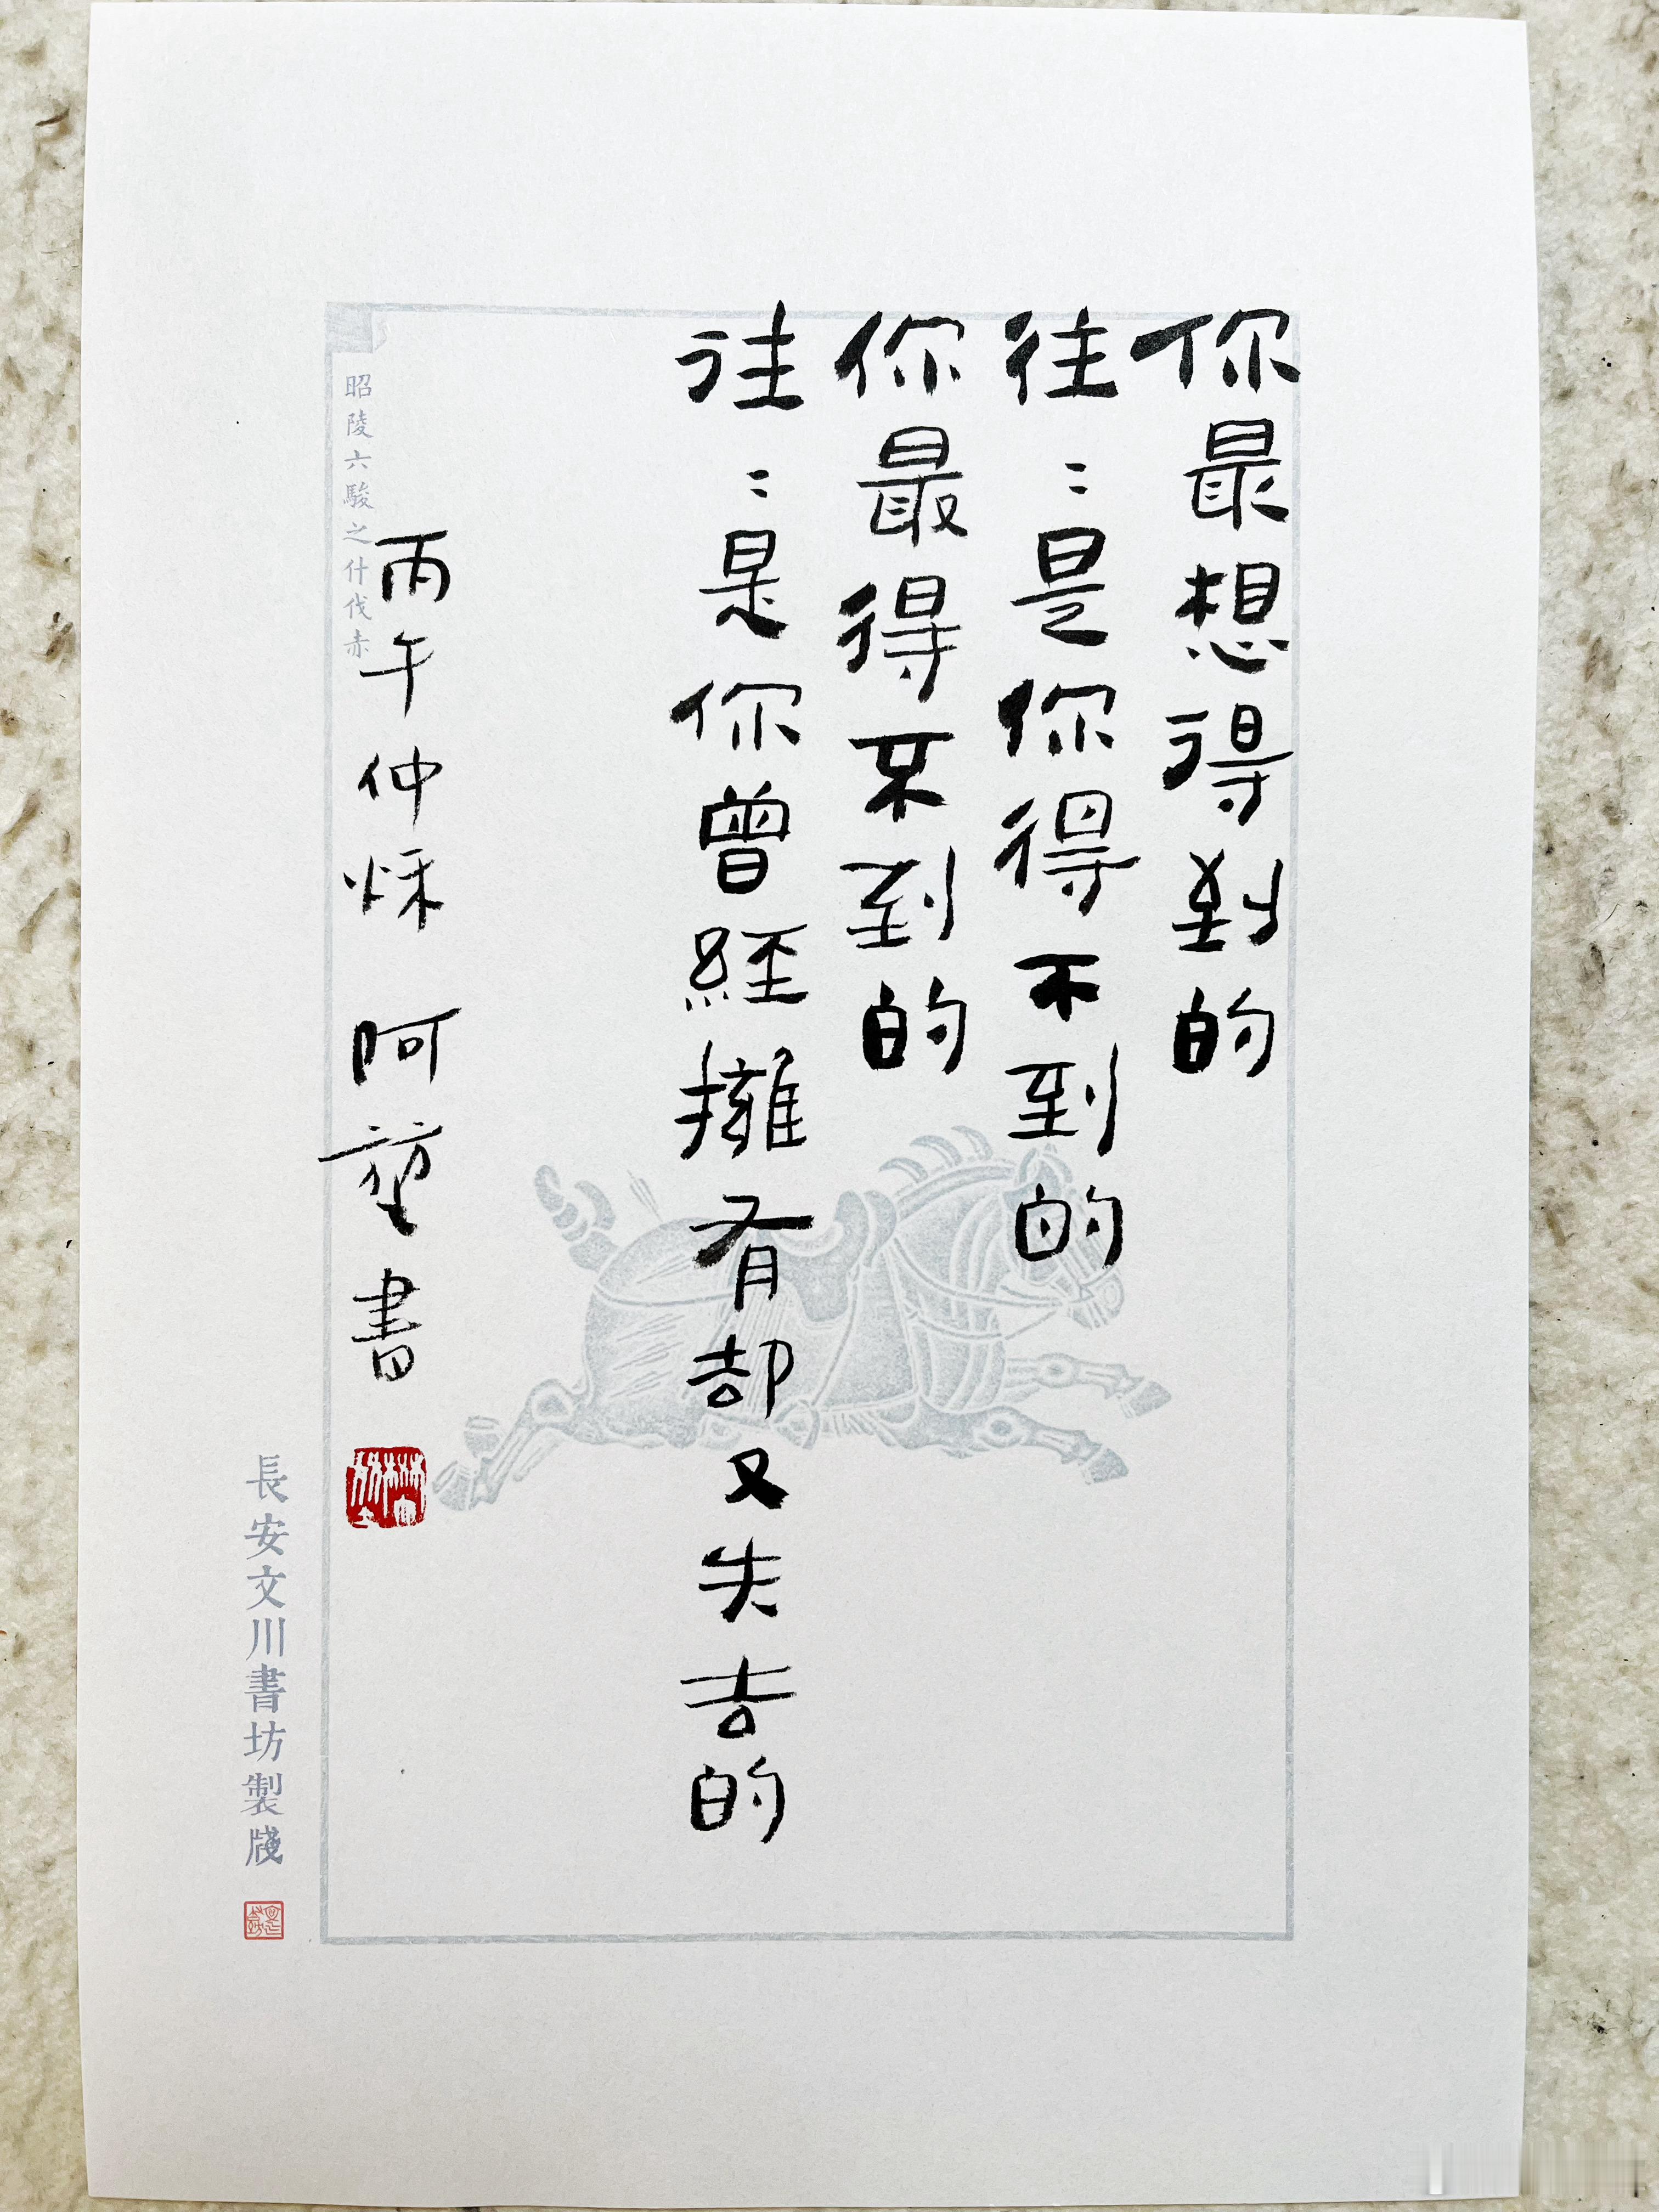 你最想得到的
往：是你得不到的
你最得不到的
往：是你曾經擁有却又失去的
丙午仲秌 阿堃書
昭陵六駿之什伐赤
長安文川書坊製牋